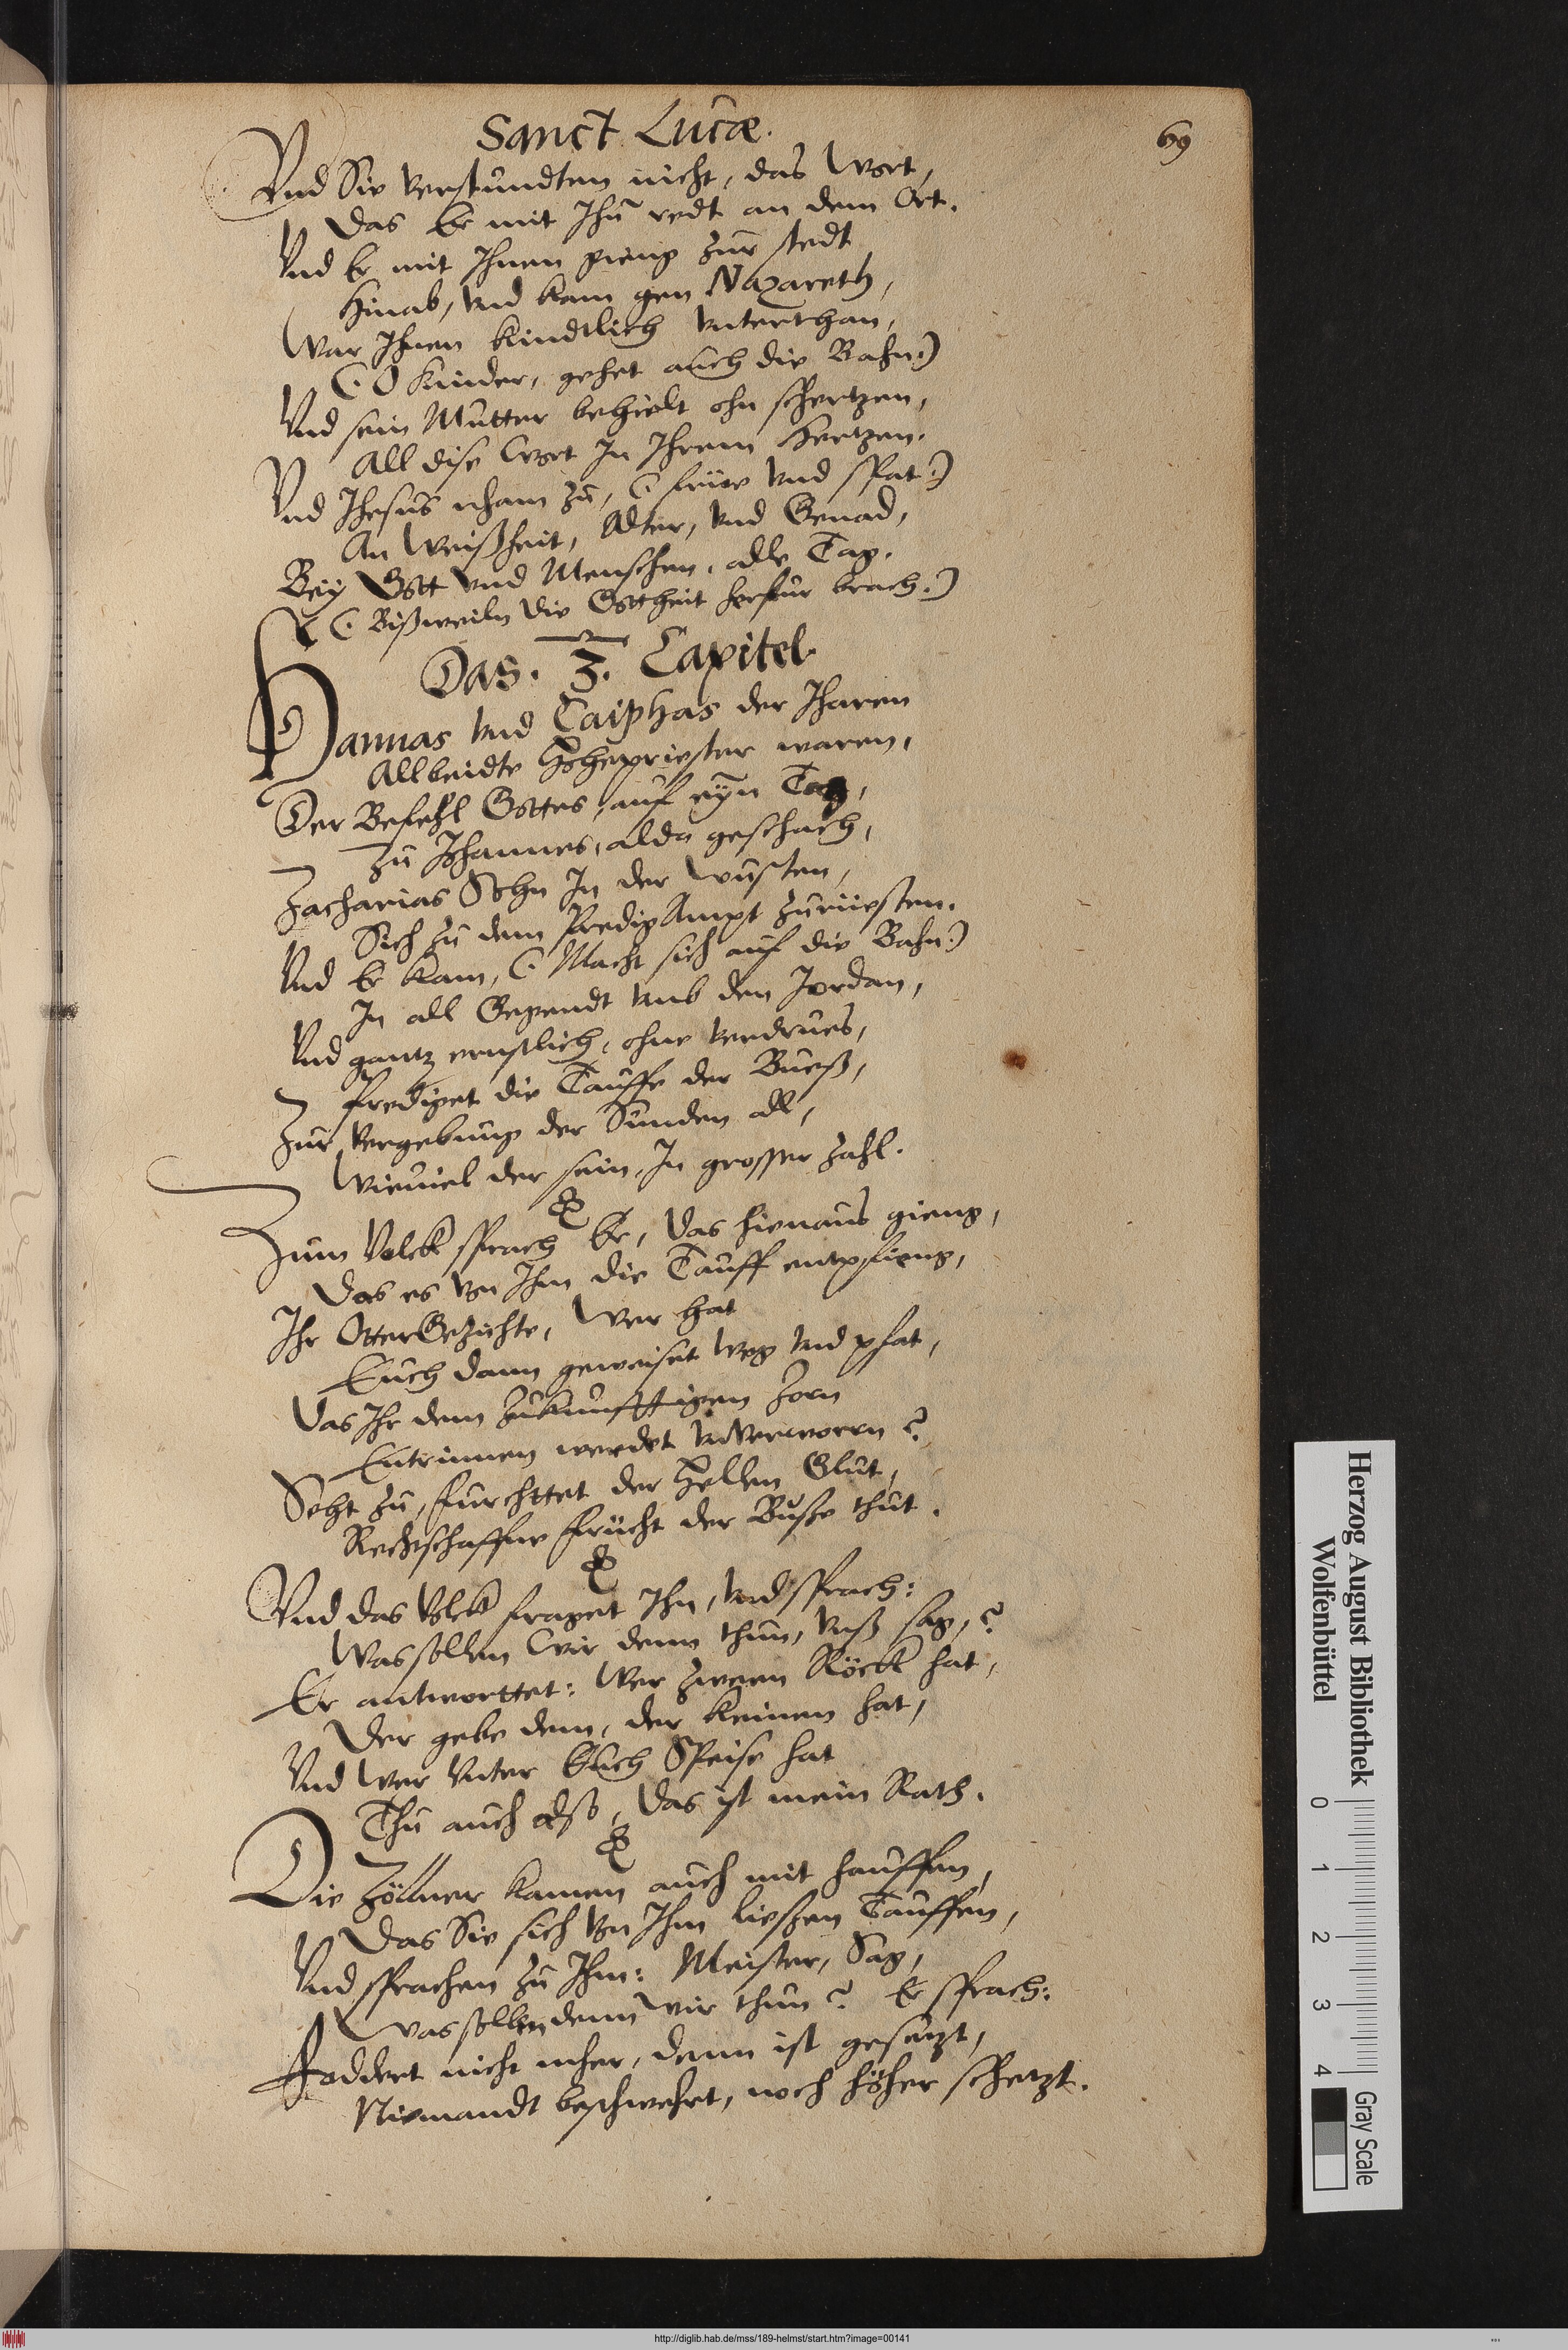 Sanct Lucæ.
69
Vnd Sie verstundten nicht, das Wort,
Das Er mit Ihn redt an dem Ort.
Vnd Er mit Ihnen gieng zur stedt
Hinab, vnd kam gen Nazareth,
War Ihnen kindtlich vnterthan,
(: O kinder, gehet auch die Bahn:)
Vnd sein Mutter behielt ohn schertzen,
All dise Wort In Ihrem Hertzen.
Vnd Ihesus nham zu, (: früe vnd spat:)
An Weißheit, Alter, vnd Genad,
Bey Gott vnd Menschen, alle Tag.
(: Bißweiln die Gottheit herfur brach:)
Das. 3. Capitel.
Hannas vnd Caiphas der Iharen
Allbeidte Hohepriester waren,
Der Befehl Gottes, auf eyn Tag,
Zu Johannes, alda geschach,
Zacharias Sohn In der wusten,
Sich zu dem Predig Ampt zurüesten.
Vnd Er kam, (: Macht sich auf die Bahn:)
In all Gegendt vmb den Jordan,
Vnd gantz ernstlich, ohne verdrues,
Prediget die Tauffe der Buess,
Zur vergebung der Sunden all,
Wieuiel der sein, In grosser zahl.
Zum Volck sprach Er, das hienaus gieng,
Das es von Ihm die Tauff entpfieng,
Ihr OtterGezichte, Wer hat
Euch dann geweiset weg vnd pfat,
Das Ihr dem zukunfttigen zorn
Entrinnen werdet vnverworrn?
Seht zu, furchttet der Hellen Glut,
Rechtschaffne frücht der Busse thut.
Vnd das Volck fraget Ihn, vnd sprach:
Was sollen Wir denn thun, vnß sag,?
Er antworttet: Wer zween Röckk hat,
Der gebe dem, der keinen hat,
Vnd Wer Vnter Euch Speise hat
Thu auch also, Das ist mein Rath.
Die Zöllner kamen auch mit hauffen,
Das Sie sich von Ihm liessen Tauffen,
Vnd sprachen zu Ihm: Meister, Sag,
was sollen denn wir thun? Er sprach:
Foddert nicht mher, denn ist gesetzt,
Niemandt beschwehrt, noch höher schetzt.
Herzog August Bibliothek
Wolfenbüttel
0 1 2 3 4
Gray Scale
http://diglib.hab.de/mss/189-helmst/start.htm?image=00141